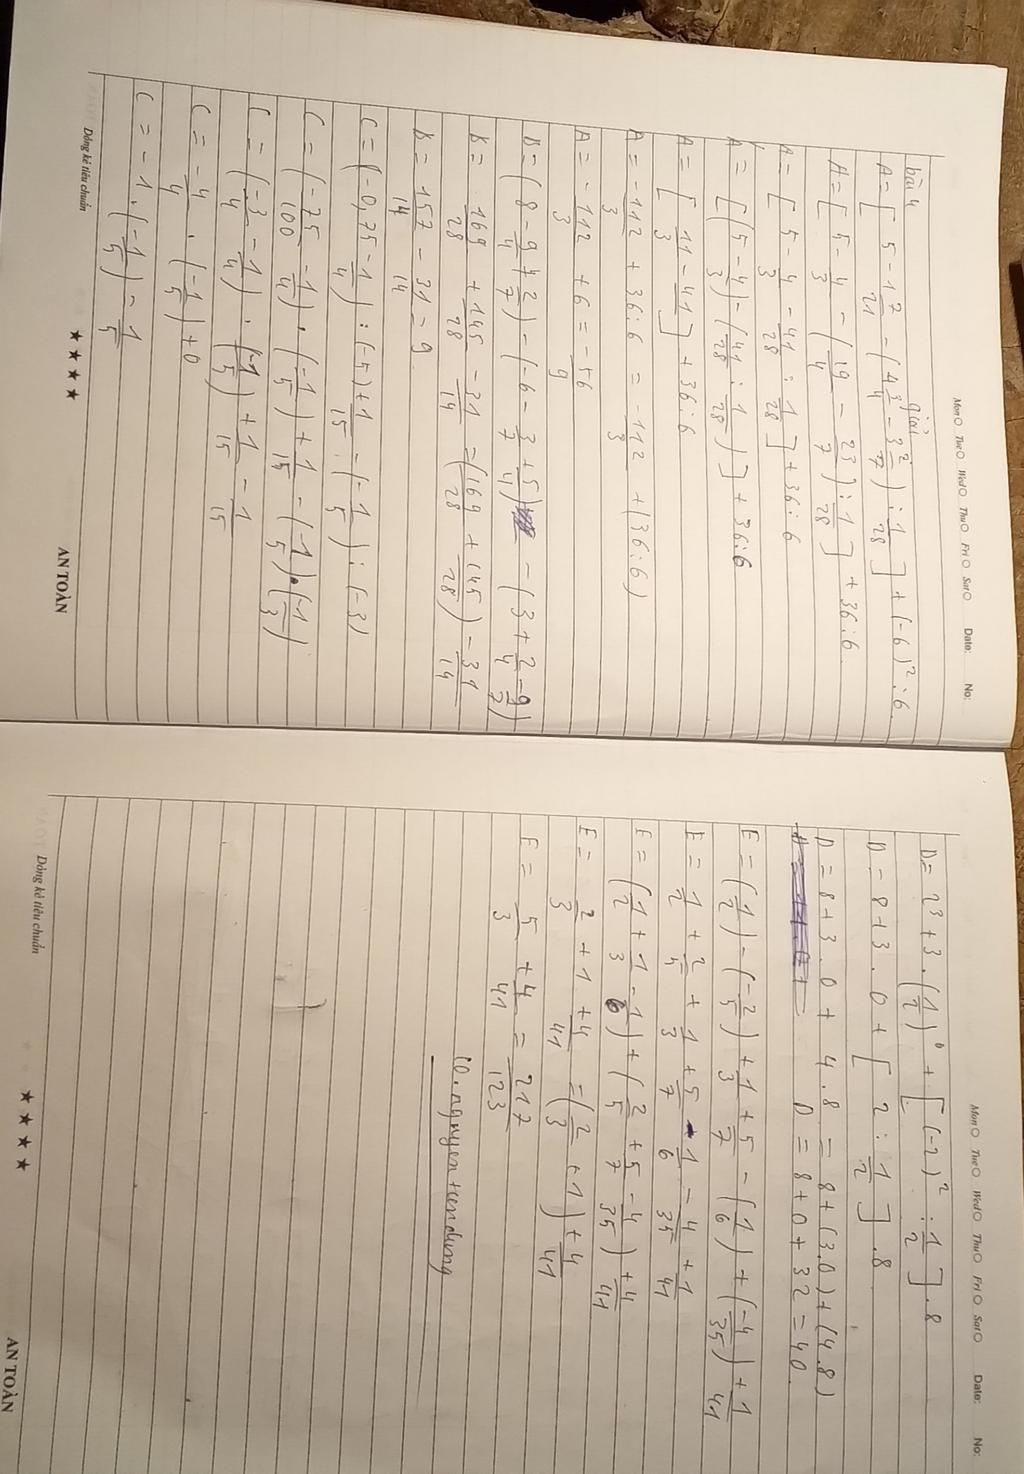 Mon O Tue O Wed O Thu O Fri O Sat O Date: No:
bài 4 giải
A = [ 5 - 17/21 - ( 4 3/4 - 3 2/7 ) : 1/28 ] + (-6)² : 6
A = [ 5 - 4/3 - ( 19/4 - 23/7 ) : 1/28 ] + 36 : 6
A = [ 5 - 4/3 - 41/28 : 1/28 ] + 36 : 6
A = [ ( 5 - 4/3 ) - ( 41/28 : 1/28 ) ] + 36 : 6
A = [ 11/3 - 41 ] + 36 : 6
A = -112/3 + 36 : 6 = -112/3 + ( 36 : 6 )
A = -112/3 + 6 = -56/9
B = ( 8 - 9/4 + 2/7 ) - ( -6 - 3/7 + 5/4 ) - ( 3 + 2/4 - 9/7 )
B = 169/28 + 145/28 - 31/14 = ( 169/28 + 145/28 ) - 31/14
B = 157/14 - 31/14 = 9
C = ( -0,75 - 1/4 ) : (-5) + 1/15 - ( -1/5 ) : (-3)
C = ( -75/100 - 1/4 ) . ( -1/5 ) + 1/15 - ( -1/5 ) . ( -1/3 )
C = ( -3/4 - 1/4 ) . ( -1/5 ) + 1/15 - 1/15
C = -4/4 . ( -1/5 ) + 0
C = -1 . ( -1/5 ) = 1/5
Dòng kẻ tiêu chuẩn ★★★★ AN TOÀN
Mon O Tue O Wed O Thu O Fri O Sat O Date: No:
D = 2³ + 3 . ( 1/2 )⁰ + [ (-2)² : 1/2 ] . 8
D = 8 + 3 . 0 + [ 2 : 1/2 ] . 8
D = 8 + 3 . 0 + 4 . 8 = 8 + ( 3 . 0 ) + ( 4 . 8 )
D = 8 + 0 + 32 = 40
E = ( 1/2 ) - ( -2/5 ) + 1/3 + 5/7 - ( 1/6 ) + ( -4/35 ) + 1/41
E = 1/2 + 2/5 + 1/3 + 5/7 - 1/6 - 4/35 + 1/41
E = ( 1/2 + 1/3 - 1/6 ) + ( 2/5 + 5/7 - 4/35 ) + 4/41
E = 2/3 + 1 + 4/41 = ( 2/3 + 1 ) + 4/41
E = 5/3 + 4/41 = 217/123
Dòng kẻ tiêu chuẩn ★★★★ AN TOÀN